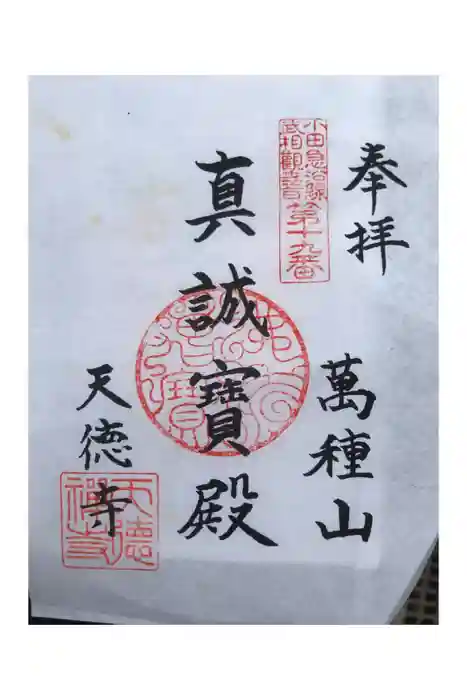 奉拝
萬種山
小田急沿線
武相観音
第十九番
真誠寶殿
天徳寺
天徳禅寺